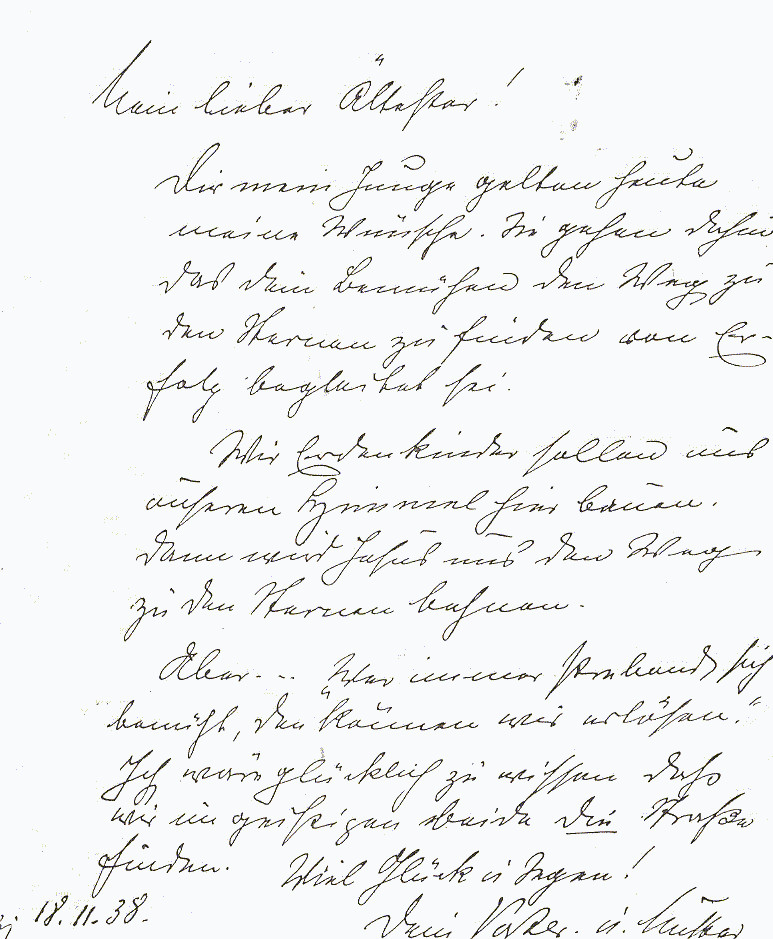 Mein lieber Ältester!
Dir mein Junge gelten heute
meine Wünsche. Sie gehen dahin
das dein Bemühen den Weg zu
den Sternen zu finden von Er-
folg begleitet sei.
Wir Erdenkinder sollen uns
unseren Himmel hier bauen.
Dann wird Jesus uns den Weg
zu den Sternen bahnen.
Aber... "Wer immer strebend sich
bemüht, den können wir erlösen."
Ich wäre glücklich zu wissen daß
wir im geistigen beide die Straße
finden. Viel Glück u Segen!
18.11.38.
Dein Vater. u. Mutter